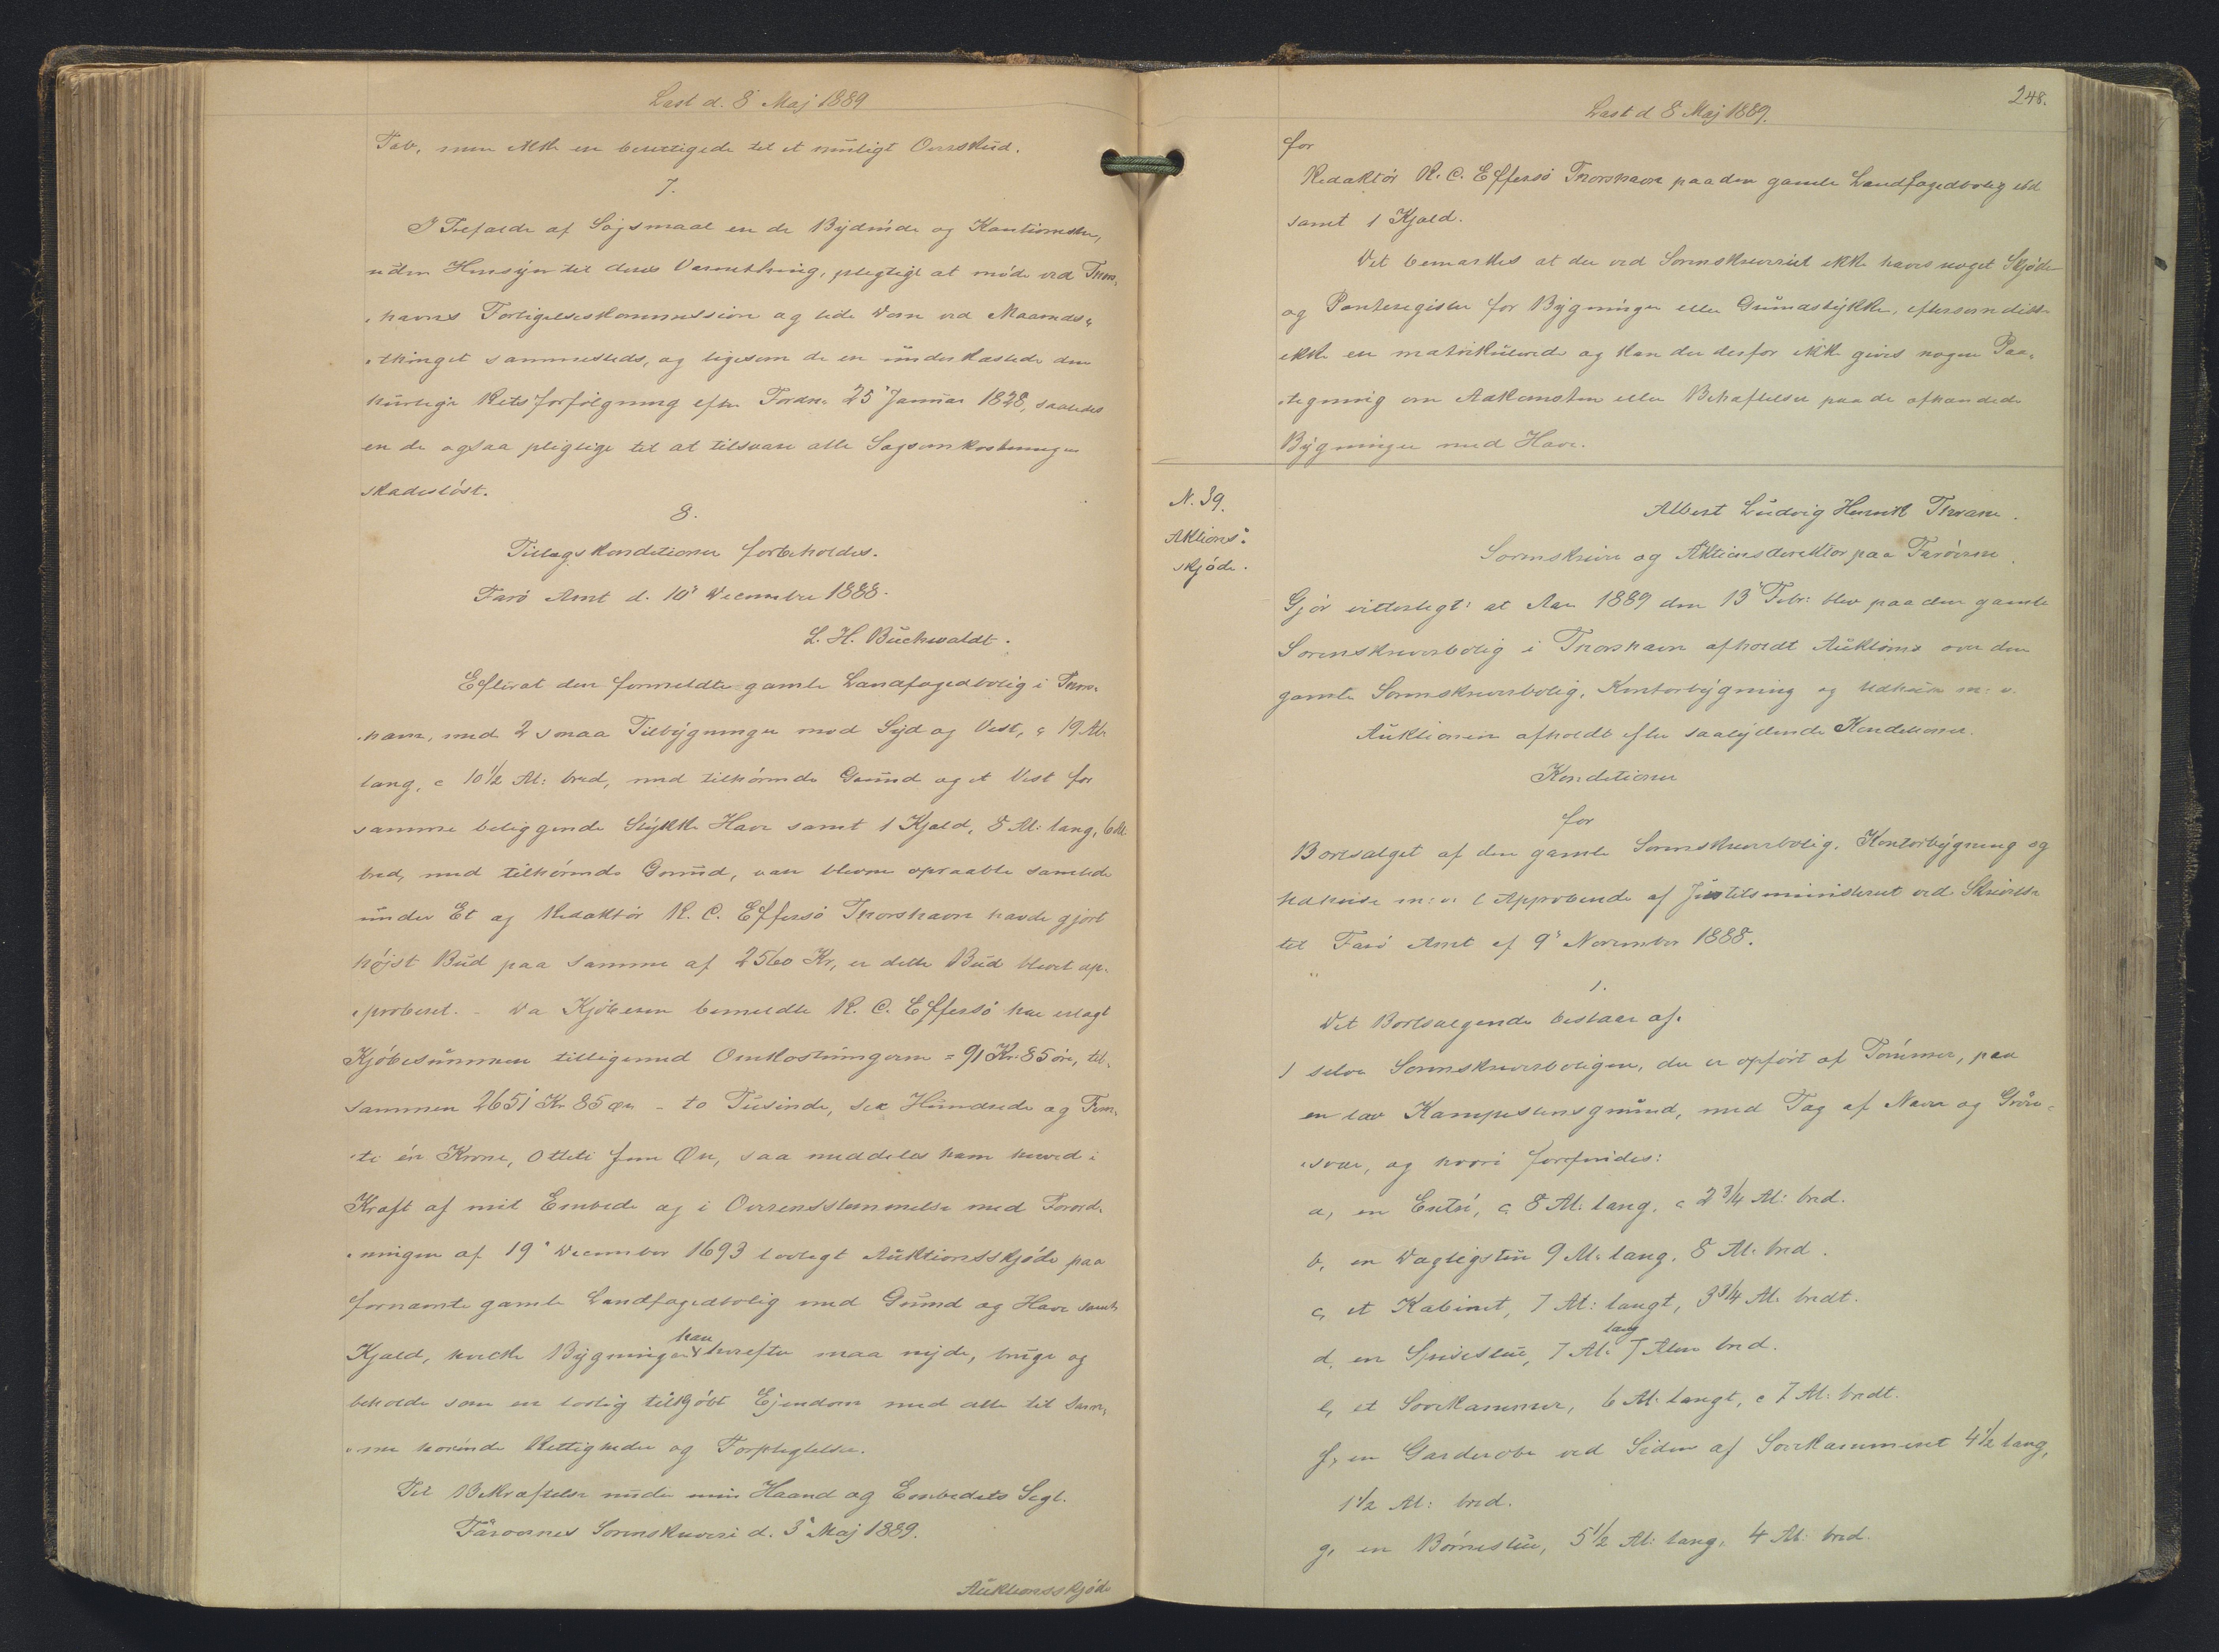 Læst d. 8 Maj 1889
Tab, men ikke er berettigede til et muligt Overskud.
7.
I Tilfælde af Søgsmaal ere de Bydende og Kautionister,
uden Hensyn til deres Værnething, pligtige at møde ved Thors-
havns Forligelseskommission og lide Dom ved Maaneds-
thinget sammesteds, og ligesom de ere underkastede den
hurtige Retsforfølgning efter Fordn. 25 Januar 1828, saaledes
ere de ogsaa pligtige til at tilsvare alle Sagsomkostninger
skadesløst.
8.
Tillægskonditioner forbeholdes.
Færø Amt d. 10 December 1888.
L. H. Buchwaldt.
Efterat den formeldte gamle Landfogedbolig i Thors-
havn, med 2 smaa Tilbygninger mod Syd og Vest, c 19 Al.
lang, c 10 1/2 Al: bred, med tilhørende Grund og et Vest for
samme beliggende Stykke Have samt 1 Kjald, 8 Al: lang, 6 Al.
bred, med tilhørende Grund, vare blevne opraabte samlede
under Et og Redaktør R. C. Effersø Thorshavn havde gjort
højst Bud paa samme af 2560 Kr, er dette Bud blevet ap-
proberet. - Da Kjøberen bemeldte R. C. Effersø har erlagt
Kjøbesummen tilligemed Omkostningerne = 91 Kr. 85 øre, til-
sammen 2651 Kr 85 Øre - to Tusinde, sex Hundrede og Fem-
ti én Krone, Otteti fem Øre, saa meddeles ham herved i
Kraft af mit Embede og i Overensstemmelse med Forord-
ningen af 19 December 1693 lovligt Auktionsskjøde paa
fornævnte gamle Landfogedbolig med Grund og Have samt
Kjald, hvilke Bygninger han herefter maa nyde, bruge og
beholde som en lovlig tilkjøbt Ejendom med alle til sam-
me hørende Rettigheder og Forpligtelser.
Til Bekræftelse under min Haand og Embedets Segl.
Færøernes Sorenskriveri d. 3 Maj 1889.
Auktionsskjøde
248.
Læst d 8 Maj 1889.
for
Redaktør R. C. Effersø Thorshavn paa den gamle Landfogedbolig ibd
samt 1 Kjald.
Det bemærkes at der ved Sorenskriveriet ikke haves noget Skjøde-
og Panteregister for Bygninger eller Grundstykker, eftersom disse
ikke ere matrikulerede og kan der derfor ikke gives nogen Paa-
tegning om Adkomsten eller Behæftelser paa de afhændede
Bygninger med Have.
N. 39.
Aktions-
skjøde.
Albert Ludvig Henrik Thrane.
Sorenskriver og Auktionsdirektør paa Færøerne
Gjør vitterligt: at Aar 1889 den 13 Febr: blev paa den gamle
Sorenskriverbolig i Thorshavn afholdt Auktion over den
gamle Sorenskriverbolig, Kontorbygning og Udhuse m: v.
Auktionen afholdt efter saalydende Konditioner.
Konditioner
for
Bortsalget af den gamle Sorenskriverbolig, Kontorbygning og
Udhuse m: v: (Approberede af Justitsministeriet ved Skrivelse
til Færø Amt af 9 November 1888.
1.
Det Bortsælgende bestaar af.
1 selve Sorenskriverboligen, der er opført af Tømmer, paa
en lav Kampestensgrund, med Tag af Næver og Grøn-
svær, og hvori forefindes:
a, en Entré, c 8 Al: lang, c 2 3/4 Al: bred.
b, en Dagligstue 9 Al: lang, 8 Al: bred.
c, et Kabinet, 7 Al: langt, 3 3/4 Al. bredt.
d, en Spisestue, 7 Al: lang 7 Alen bred.
e, et Sovekammer, 6 Al: langt, c 7 Al: bredt.
f, en Garderobe ved Siden af Sovekammeret 4 1/2 lang,
1 1/2 Al: bred.
g, en Børnestue, 5 1/2 Al: lang, 4 Al: bred